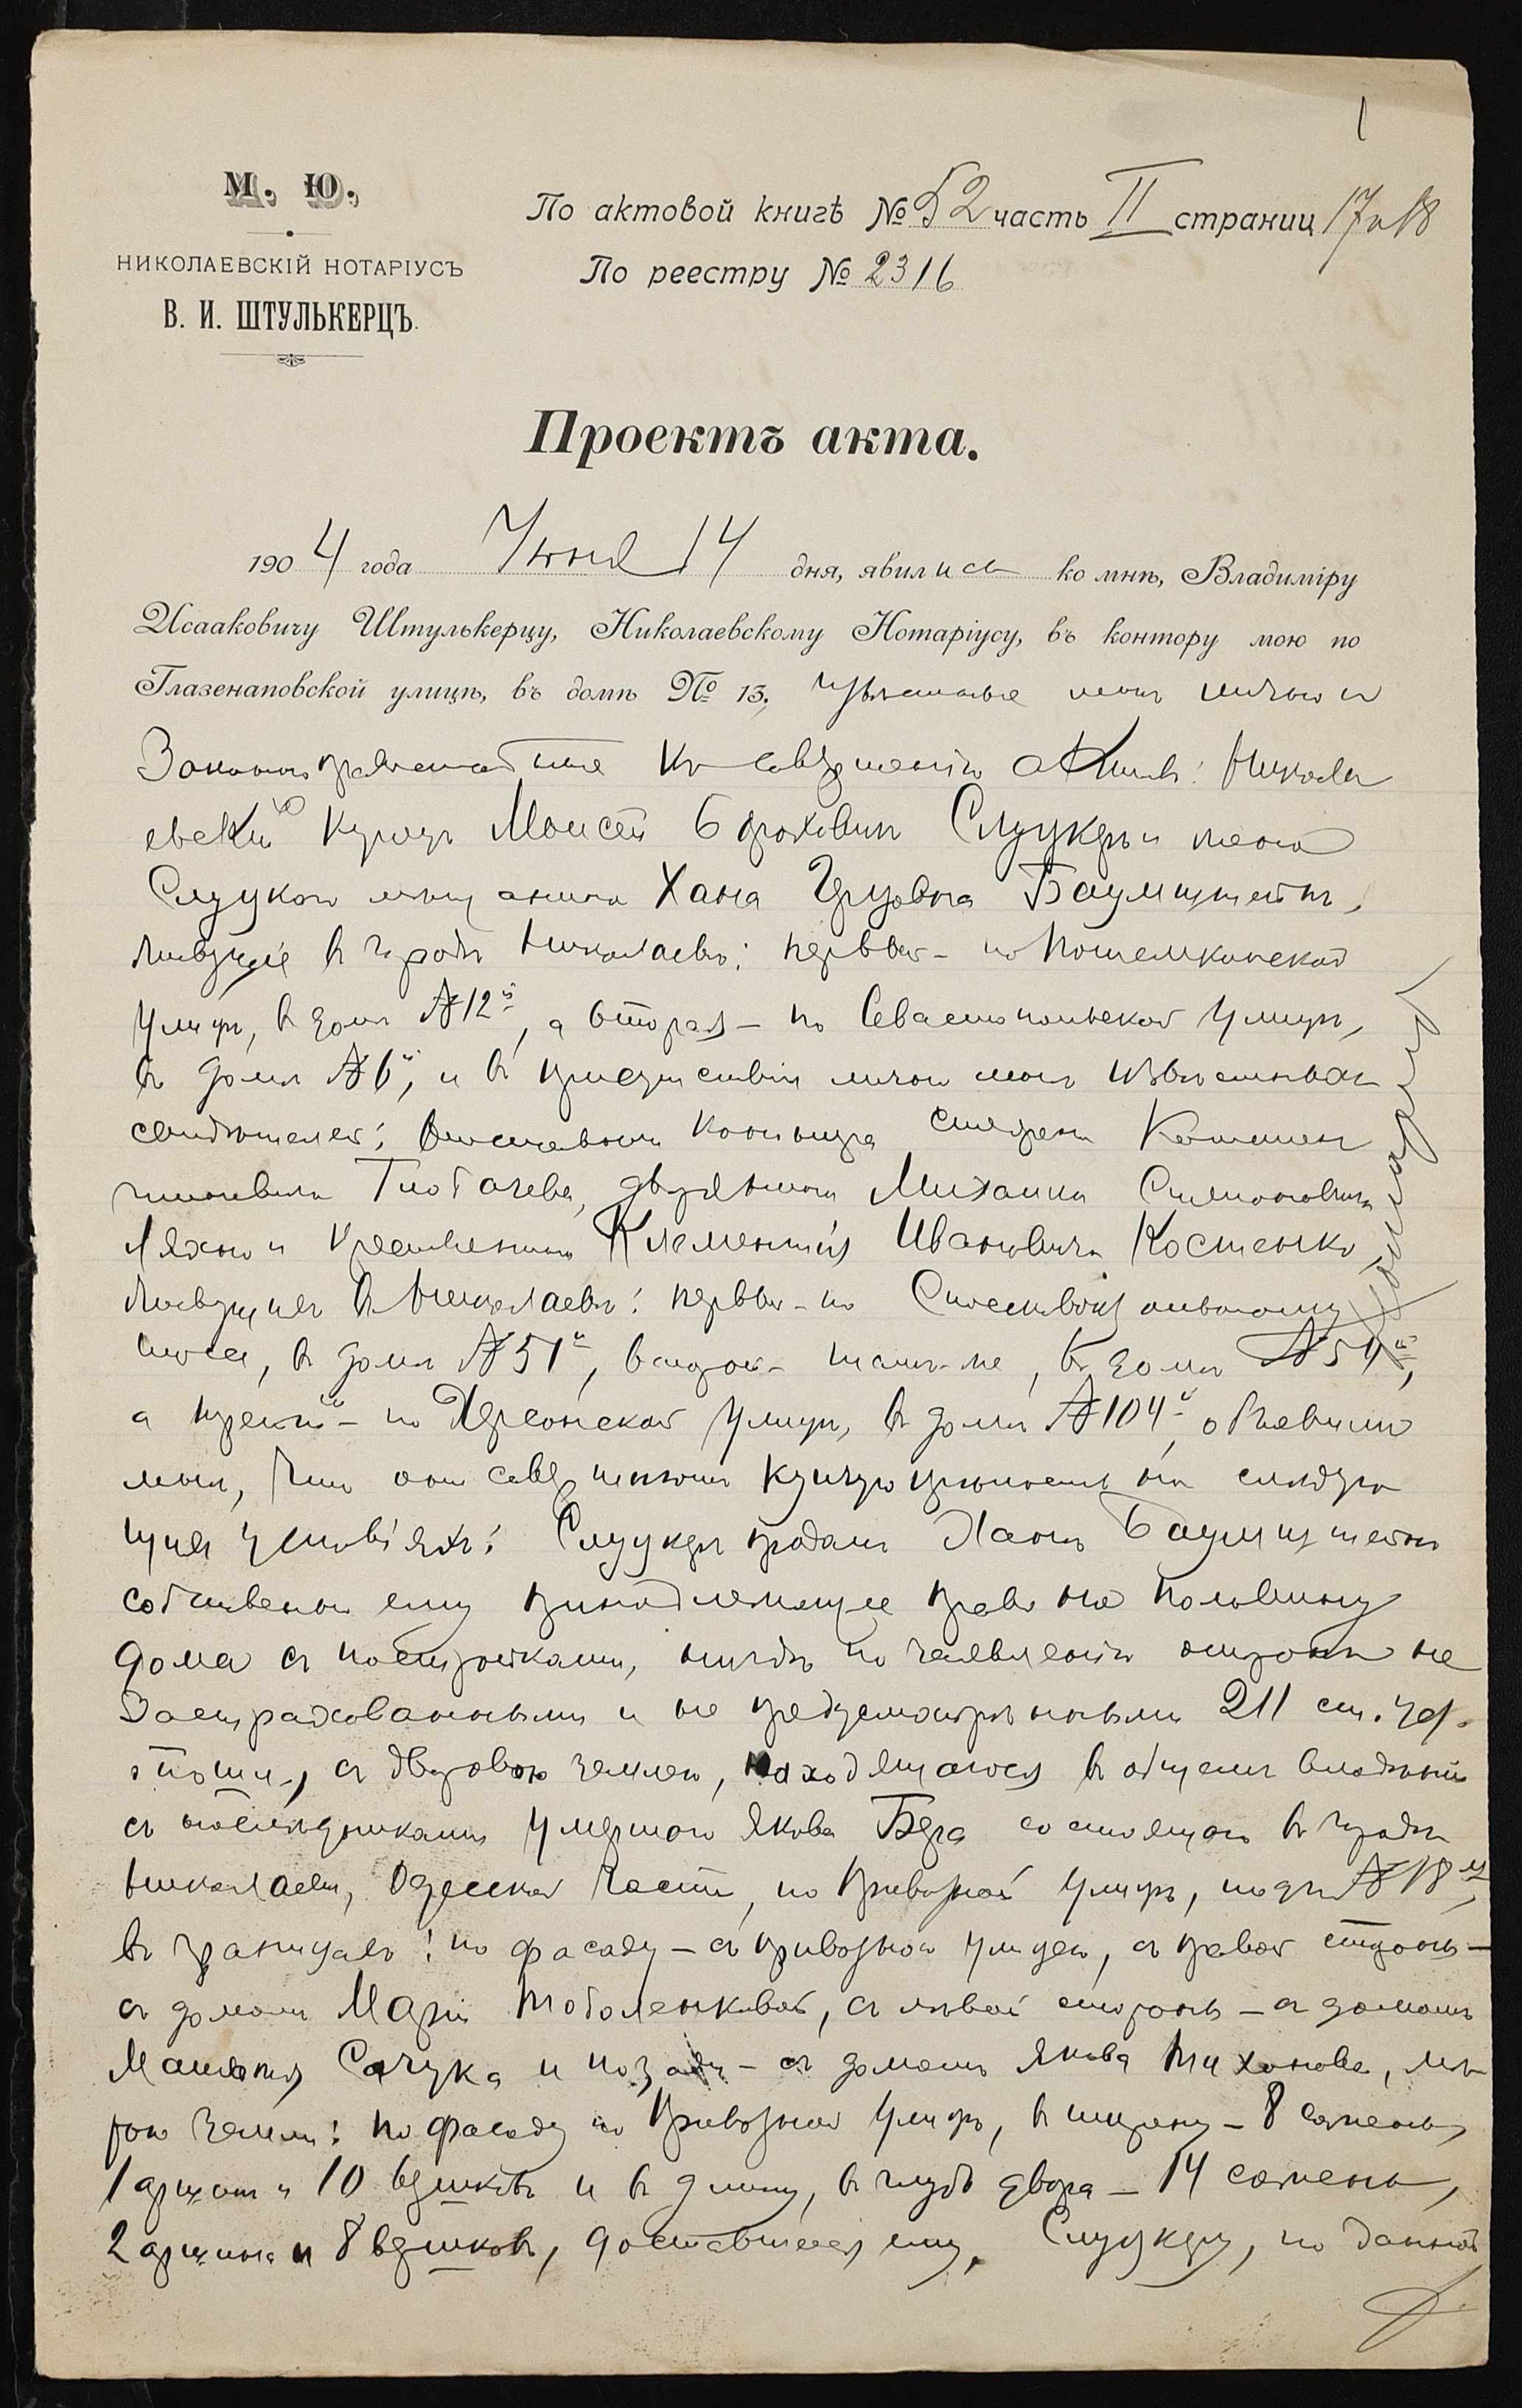 1
М. Ю.
НИКОЛАЕВСКІЙ НОТАРІУСЪ
В. И. ШТУЛЬКЕРЦЪ.
По актовой книгѣ № 52 часть II страниц 17 и 18
По реестру № 2316
Проектъ акта.
1904 года Іюня 14 дня, явились ко мнѣ, Владиміру
Исааковичу Штулькерцу, Николаевскому Нотаріусу, въ контору мою по
Глазенаповской улицѣ, въ домѣ № 13, извѣстные мнѣ лично и
Законно правоспособные къ совершенію актовъ: Никола
евскій Купецъ Моисей Слуцкеръ и
Слуцкая мѣщанка Хана Баумштейнъ,
живущіе въ городѣ Николаевѣ: первый - по Потемкинской
улицѣ, въ домѣ № 12й, а вторая - по Севастопольской улицѣ,
въ домѣ № 6й, и въ присутствіи лично мнѣ извѣстныхъ
свидѣтелей:
дворянина Михаила
и крестьянина Климентія Ивановича Костенко,
живущихъ въ Николаевѣ: первый - по
въ домѣ № 51й, второй - тамъ-же, въ домѣ № 54й,
а третій - по Херсонской улицѣ, въ домѣ № 104й, объявили
мнѣ, что они совершаютъ купчую крѣпость на слѣдую
щихъ условіяхъ: Слуцкеръ продалъ Ханѣ Баумштейнъ
собственно ему принадлежащее право на половину
дома съ постройками, нигдѣ по заявленію сторонъ не
Застрахованными и не предусмотрѣнными 211 ст. уст.
о пошл., съ дворовою землею, находящагося въ общемъ владѣніи
съ наслѣдниками умершаго Якова Бера состоящаго въ городѣ
Николаевѣ, Одесской части, по Привозной улицѣ, подъ № 18м,
въ границахъ: по фасаду - съ Привозной улицею, съ правой стороны -
съ домомъ Маріи съ лѣвой стороны - съ домомъ
Сачука и позади - съ домомъ Якова Тихонова, мѣ
рою земли: по фасаду по Привозной улицѣ, въ ширину - 8 сажень,
1 аршинъ и 10 вершковъ и въ длину, въ глубь двора - 14 сажень,
2 аршина и 8 вершковъ, доставшееся ему, Слуцкеру, по данной